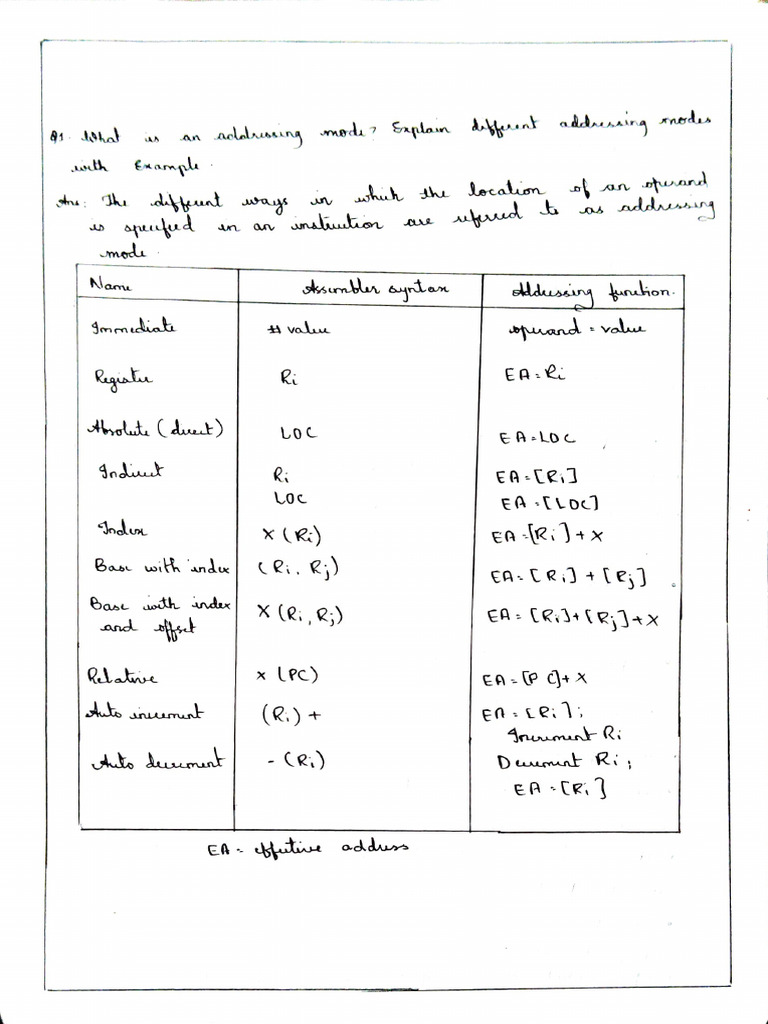 Q1. What is an addressing mode? Explain different addressing modes
with Example.
Ans: The different ways in which the location of an operand
is specified in an instruction are referred to as addressing
mode.
Name Assembler syntax Addressing function.
Immediate # value operand = value
Register Ri EA = Ri
Absolute (direct) LOC EA = LOC
Indirect Ri EA = [Ri]
LOC EA = [LOC]
Index X (Ri) EA = [Ri] + X
Base with index (Ri, Rj) EA = [Ri] + [Rj]
Base with index X (Ri, Rj) EA = [Ri] + [Rj] + X
and offset
Relative X (PC) EA = [PC] + X
Auto increment (Ri) + EA = [Ri];
Increment Ri
Auto decrement - (Ri) Decrement Ri;
EA = [Ri]
EA = effective address